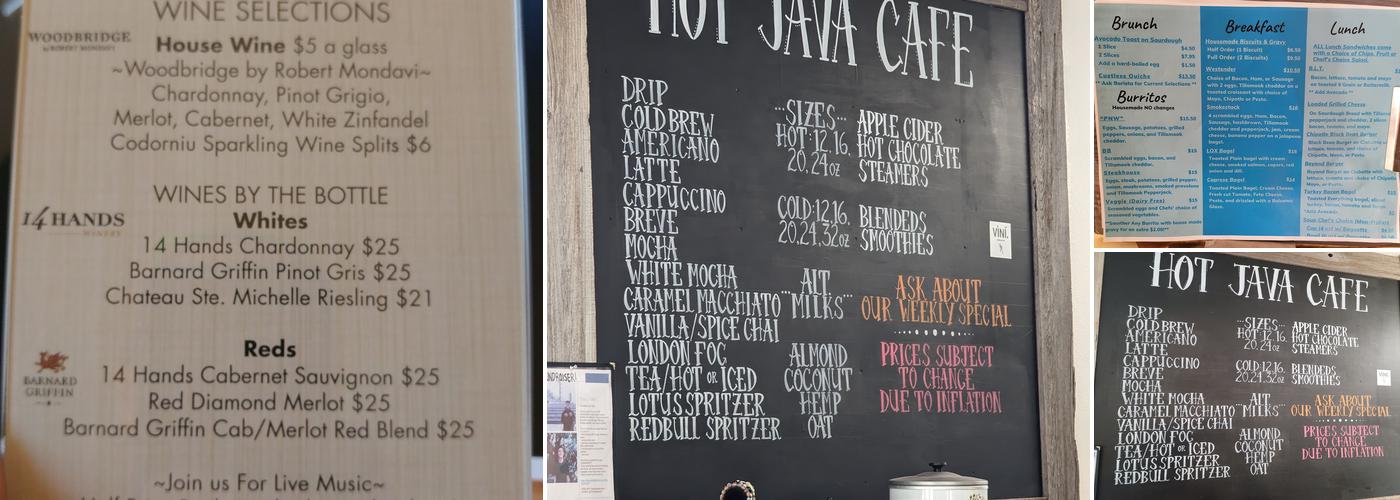 WINE SELECTIONS
WOODBRIDGE
BY ROBERT MONDAVI
House Wine $5 a glass
~Woodbridge by Robert Mondavi~
Chardonnay, Pinot Grigio,
Merlot, Cabernet, White Zinfandel
Codorniu Sparkling Wine Splits $6
WINES BY THE BOTTLE
14 HANDS
WINERY
Whites
14 Hands Chardonnay $25
Barnard Griffin Pinot Gris $25
Chateau Ste. Michelle Riesling $21
Reds
BARNARD
GRIFFIN
14 Hands Cabernet Sauvignon $25
Red Diamond Merlot $25
Barnard Griffin Cab/Merlot Red Blend $25
~Join us For Live Music~
HOT JAVA CAFE
DRIP
COLD BREW
AMERICANO
LATTE
CAPPUCCINO
BREVE
MOCHA
WHITE MOCHA
CARAMEL MACCHIATO
VANILLA/SPICE CHAI
LONDON FOG
TEA/HOT OR ICED
LOTUS SPRITZER
REDBULL SPRITZER
...SIZES...
HOT:12,16,
20,24oz
COLD:12,16,
20,24,32oz
ALT
...MILKS...
ALMOND
COCONUT
HEMP
OAT
APPLE CIDER
HOT CHOCOLATE
STEAMERS
BLENDEDS
SMOOTHIES
VINI.
ASK ABOUT
OUR WEEKLY SPECIAL
PRICES SUBJECT
TO CHANGE
DUE TO INFLATION
Brunch
Avocado Toast on Sourdough
1 Slice $4.50
2 Slices $7.95
Add a hard-boiled egg $1.50
Crustless Quiche $13.50
** Ask Barista for Current Selections **
Burritos
Housemade NO changes
"PNW" $15.50
Eggs, Sausage, potatoes, grilled
peppers, onions, and Tillamook
cheddar.
BB $15
Scrambled eggs, bacon, and
Tillamook cheddar.
Steakhouse $15
Eggs, steak, potatoes, grilled pepper,
onion, mushrooms, smoked provolone
and Tillamook Pepperjack.
Veggie (Dairy Free) $15
Scrambled eggs and Chefs' choice of
seasoned vegetables.
**Smother Any Burrito with house made
gravy for an extra $2.00!**
Breakfast
Housemade Biscuits & Gravy
Half Order (1 Biscuit) $6.50
Full Order (2 Biscuits) $9.50
Westender $10.50
Choice of Bacon, Ham, or Sausage
with 2 eggs, Tillamook cheddar on a
toasted croissant with choice of
Mayo, Chipotle or Pesto.
Smokestack $16
4 scrambled eggs, Ham, Bacon,
Sausage, hashbrown, Tillamook
cheddar and pepperjack, jam, cream
cheese, banana pepper on a jalapeno
bagel.
LOX Bagel $16
Toasted Plain bagel with cream
cheese, smoked salmon, capers, red
onion and dill.
Caprese Bagel $14
Toasted Plain Bagel, Cream Cheese,
Fresh cut Tomato, Feta Cheese,
Pesto, and drizzled with a Balsamic
Glaze.
Lunch
ALL Lunch Sandwiches come
with a Choice of Chips, Fruit or
Chef's Choice Salad.
B.L.T.
Bacon, lettuce, tomato and mayo
on toasted 9 Grain or Buttermilk.
** Add Avocado **
Loaded Grilled Cheese
On Sourdough Bread with Tillamook
pepperjack and cheddar, 2 slices
bacon, tomato, and mayo.
Chipotle Black Bean Burger
Black Bean Burger on Ciabatta
lettuce, tomato, and choice of
Chipotle, Mayo, or Pesto.
Beyond Burger
Beyond Burger on Ciabatta with
lettuce, tomato and choice of Chipotle
Mayo, or Pesto.
Turkey Bacon Bagel
Toasted Everything bagel,
turkey, bacon, tomato and
*Add Avocado
HOT JAVA CAFE
DRIP
COLD BREW
AMERICANO
LATTE
CAPPUCCINO
BREVE
MOCHA
WHITE MOCHA
CARAMEL MACCHIATO
VANILLA/SPICE CHAI
LONDON FOG
TEA/HOT OR ICED
LOTUS SPRITZER
REDBULL SPRITZER
...SIZES...
HOT:12,16,
20,24oz
COLD:12,16,
20,24,32oz
ALT
...MILKS...
ALMOND
COCONUT
HEMP
OAT
APPLE CIDER
HOT CHOCOLATE
STEAMERS
BLENDEDS
SMOOTHIES
VINI.
ASK ABOUT
OUR WEEKLY SPECIAL
PRICES SUBJECT
TO CHANGE
DUE TO INFLATION